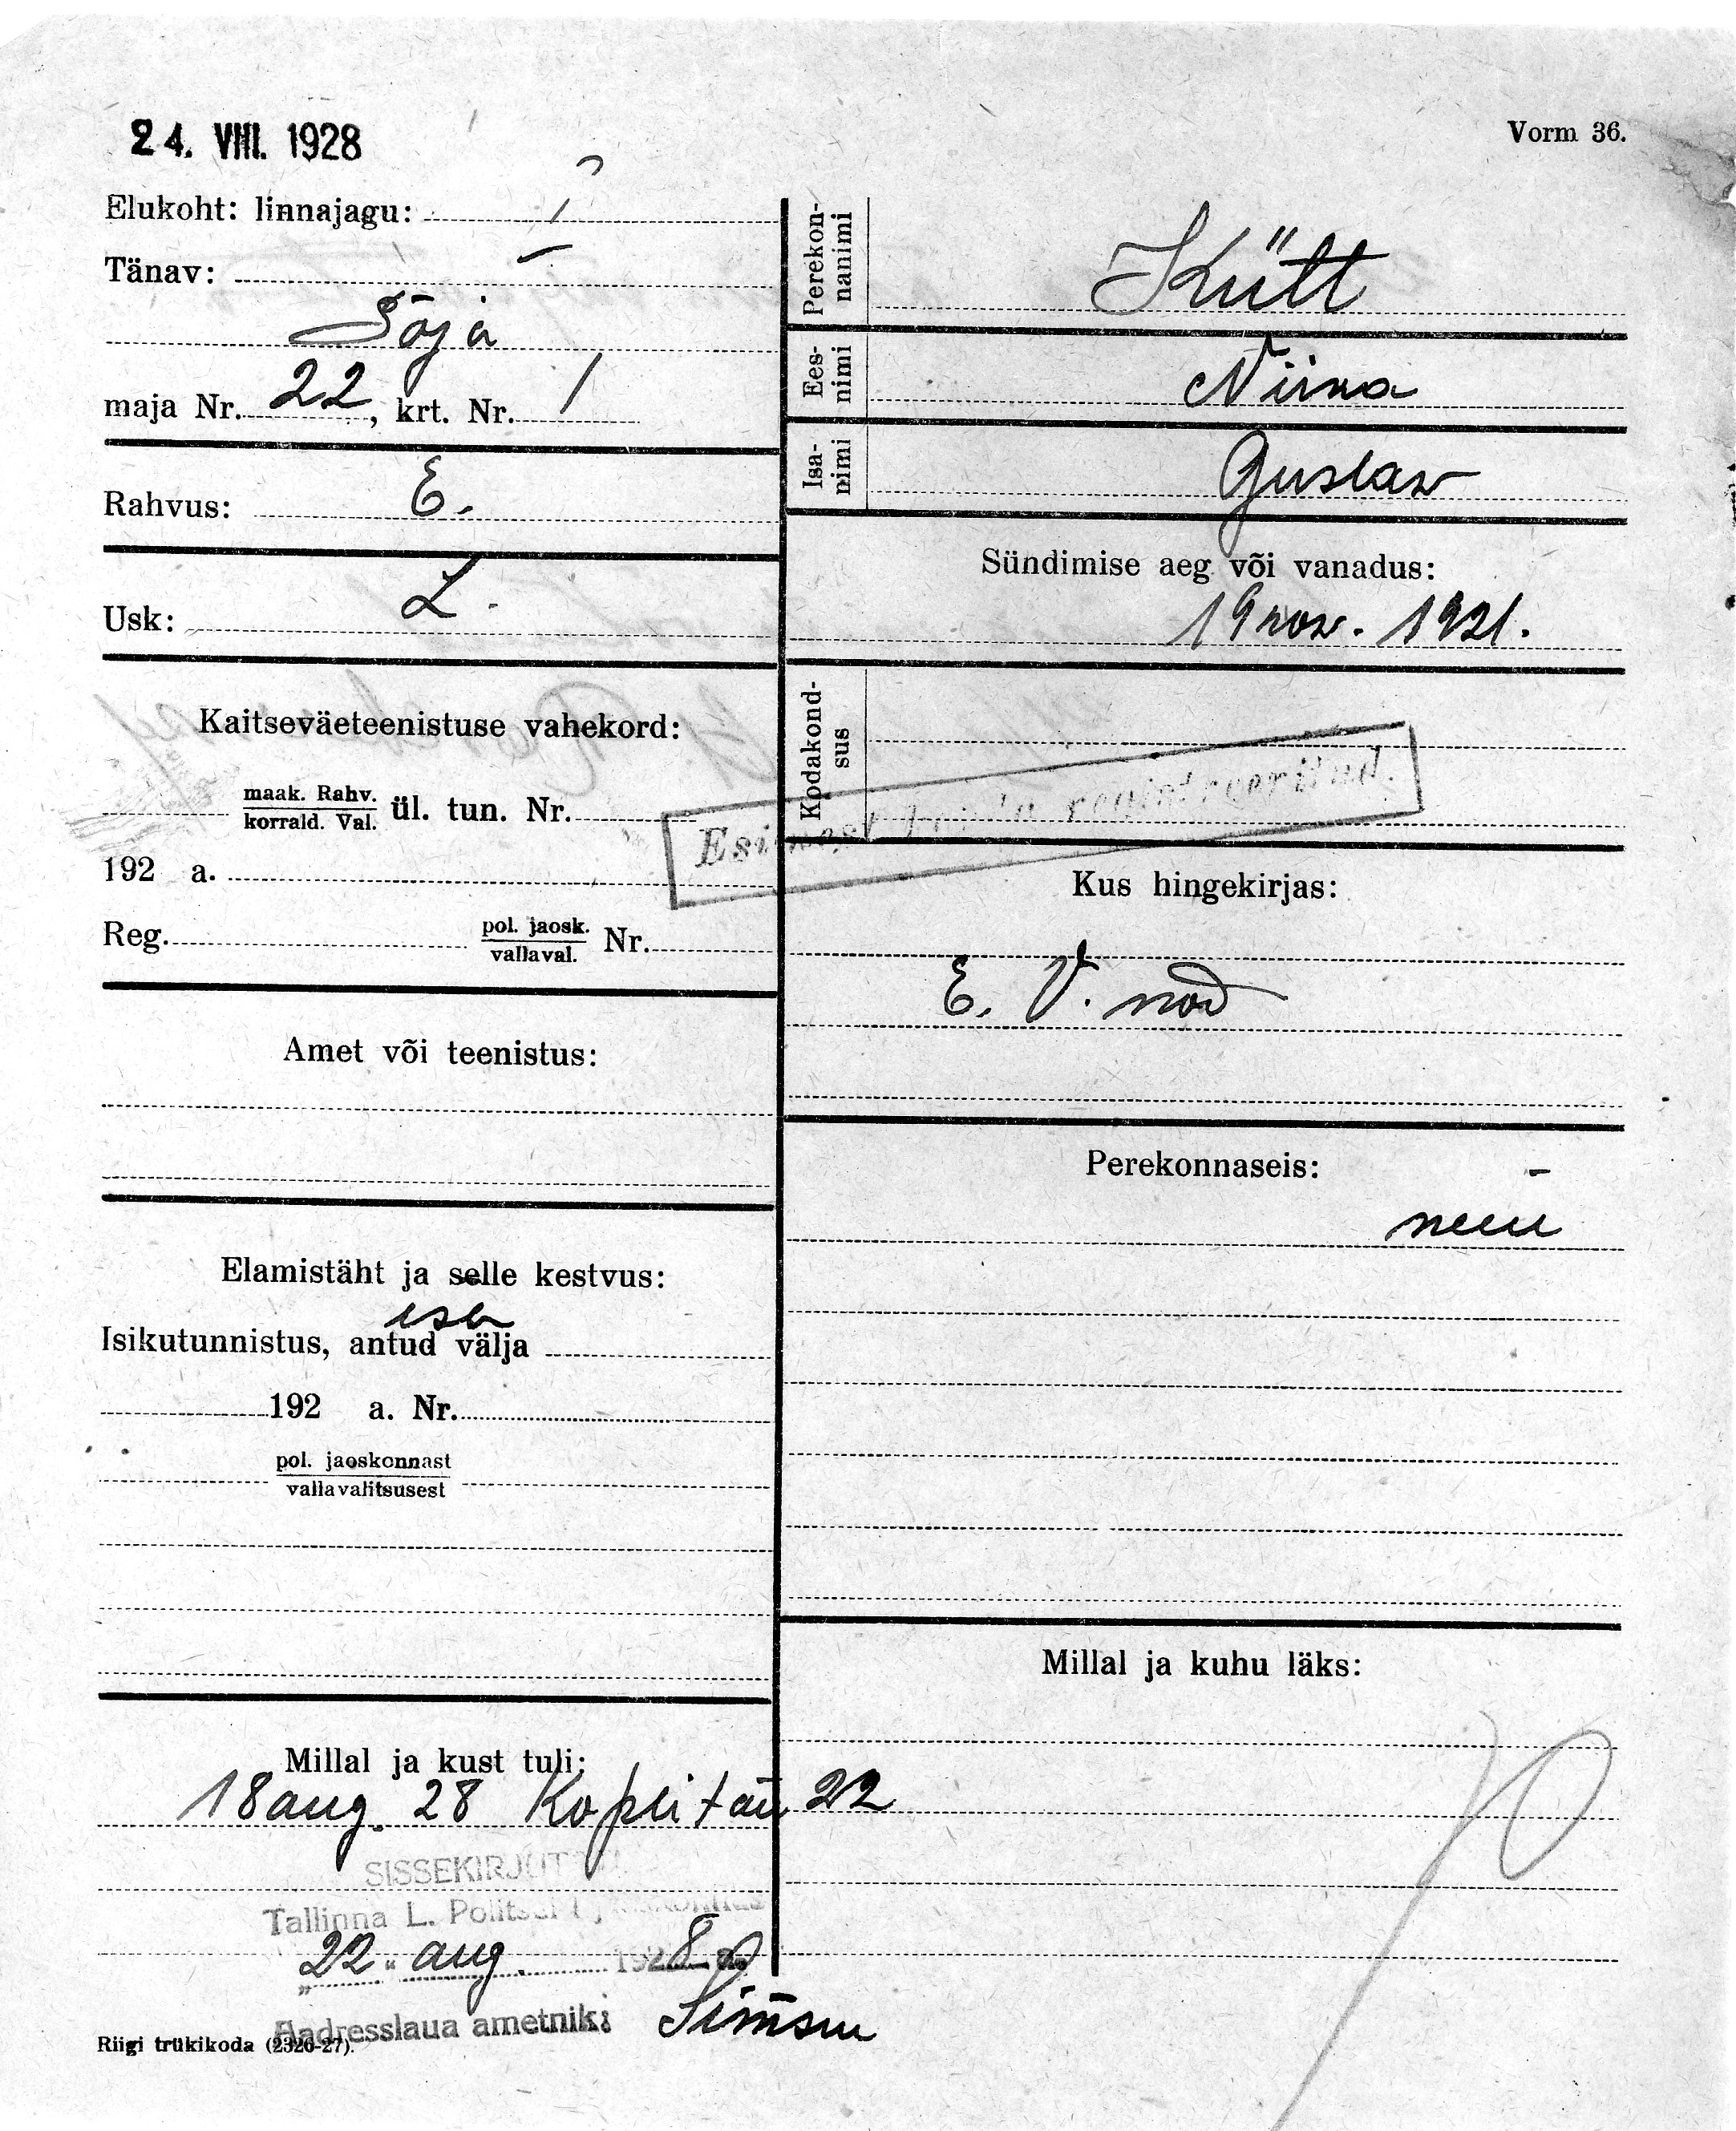 24. VIII. 1928
Vorm 36.
Elukoht: linnajagu: 1
Tänav:
Sõja
maja Nr. 22, krt. Nr. 1
Rahvus: E.
Usk: L.
Kaitseväeteenistuse vahekord:
maak. Rahv.
korrald. Val. ül. tun. Nr.
192 a.
Reg. pol. jaosk.
vallaval. Nr.
Amet või teenistus:
Elamistäht ja selle kestvus:
isa
Isikutunnistus, antud välja
192 a. Nr.
pol. jaoskonnast
vallavalitsusest
Millal ja kust tuli:
18 aug. 28 Kopli tän 22
SISSEKIRJUT
Tallinna L. Politsei
"22" aug. 1928 a.
Aadresslaua ametnik:
Riigi trükikoda (2326-27).
Perekon-
nanimi
Kütt
Ees-
nimi
Niina
Isa-
nimi
Gustav
Sündimise aeg või vanadus:
19 nov. 1921.
Kodakond-
sus
Esimest korda registreeritud.
Kus hingekirjas:
E. V. nod
Perekonnaseis:
neiu
Millal ja kuhu läks: